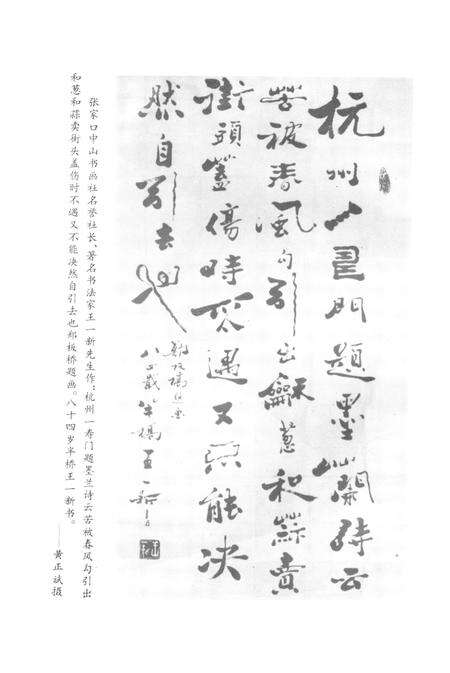 杭州一寿门题墨兰诗云
苦被春风勾引出和葱和蒜卖
街头盖伤时不遇又不能决
然自引去也
郑板桥题画
八四岁半桥王一新书
张家口中山书画社名誉社长、著名书法家王一新先生作：杭州一寿门题墨兰诗云苦被春风勾引出
和葱和蒜卖街头盖伤时不遇又不能决然自引去也郑板桥题画。八十四岁半桥王一新书。
——黄正斌摄